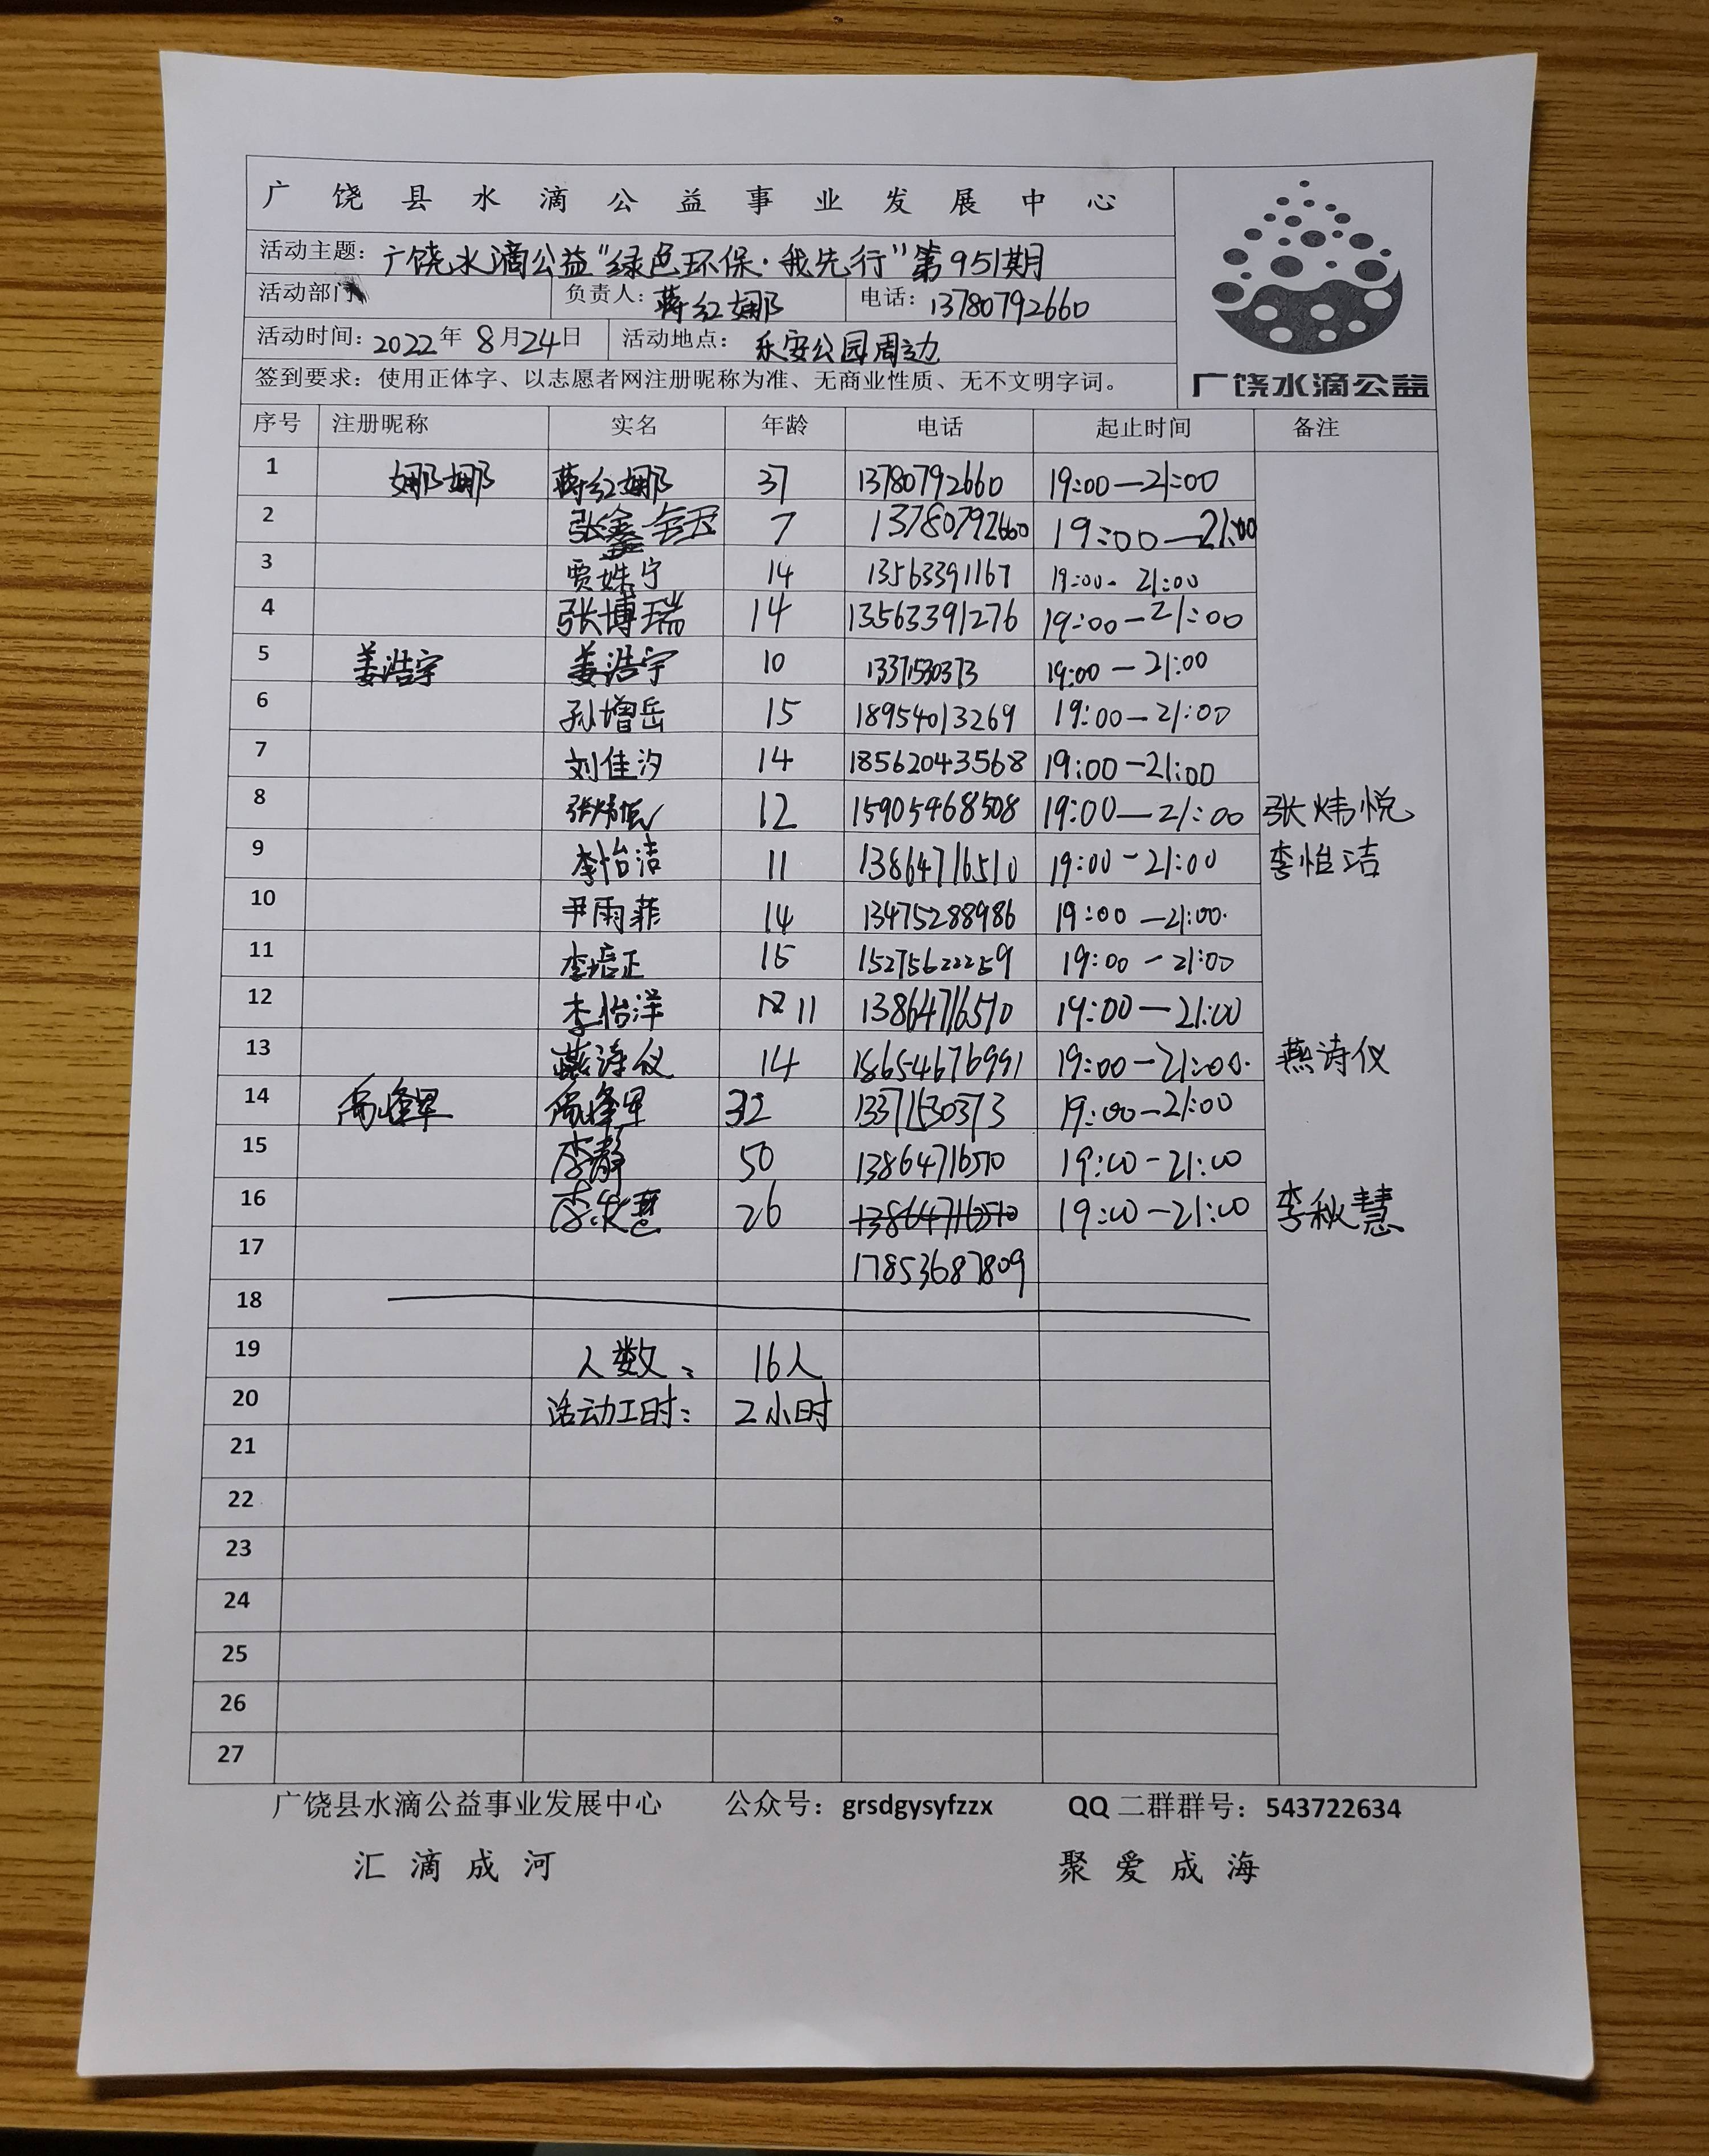 广饶县水滴公益事业发展中心
活动主题：广饶水滴公益“绿色环保·我先行”第951期
活动部门 负责人：蒋红娜 电话：13780792660
活动时间：2022年8月24日 活动地点：乐安公园周边
签到要求：使用正体字、以志愿者网注册昵称为准、无商业性质、无不文明字词。
广饶水滴公益
序号 注册昵称 实名 年龄 电话 起止时间 备注
1 娜娜 蒋红娜 37 13780792660 19:00—21:00
2 张鑫 7 13780792660 19:00—21:00
3 贾姝宁 14 13563391167 19:00- 21:00
4 张博瑞 14 13563391276 19:00-21:00
5 姜浩宇 姜浩宇 10 13371530373 19:00—21:00
6 孙增岳 15 18954013269 19:00—21:00
7 刘佳汐 14 18562043568 19:00-21:00
8 张炜悦 12 15905468508 19:00—21:00 张炜悦
9 李怡洁 11 13864716510 19:00-21:00 李怡洁
10 尹雨菲 14 13475288986 19:00—21:00.
11 李培正 15 15275622259 19:00-21:00
12 李怡洋 11 13864716510 19:00—21:00
13 燕涛仪 14 18654676991 19:00-21:00. 燕涛仪
14 32 13371530373 19:00-21:00
15 李静 50 13864716510 19:00-21:00
16 李秋慧 26 13864716510 19:00-21:00 李秋慧
17 17853687809
18
19 人数： 16人
20 活动工时： 2小时
21
22
23
24
25
26
27
广饶县水滴公益事业发展中心 公众号：grsdgysyfzzx QQ二群群号：543722634
汇滴成河 聚爱成海